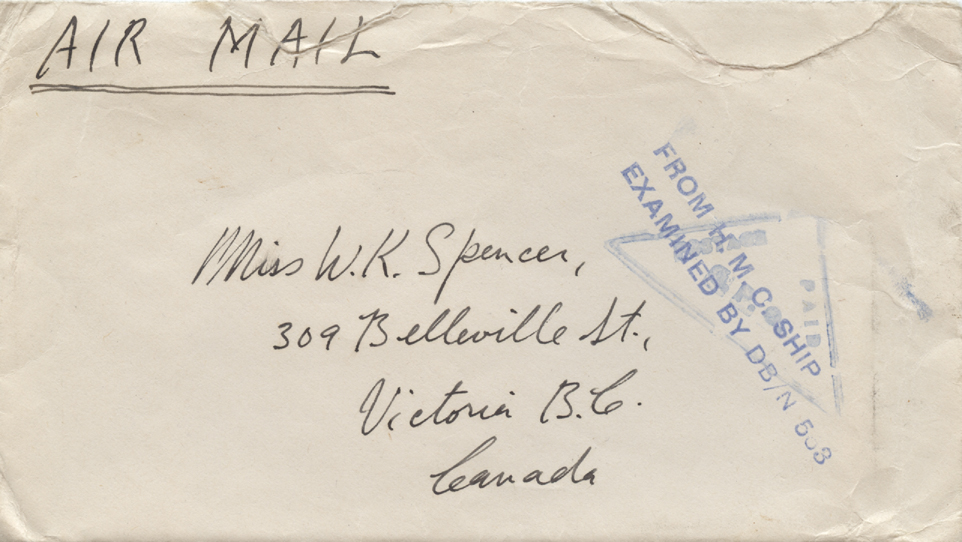 AIR MAIL
FROM H.M.C. SHIP
EXAMINED BY DB/N
PAID
Miss W.K. Spencer,
309 Belleville St.,
Victoria B.C.
Canada